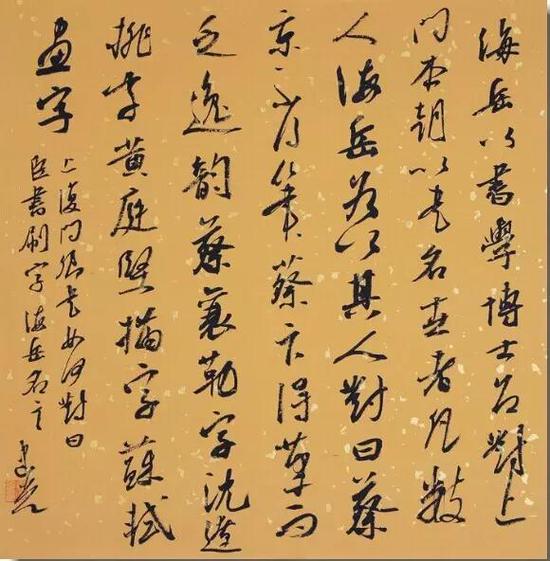 海岳以書學博士召對上
問本朝以書名世者凡數
人海岳各以其人對曰蔡
京不得筆蔡卞得筆而
乏逸韵蔡襄勒字沈遼
排字黄庭堅描字蘇軾
畫字
上復問卿書如何對曰
臣書刷字海岳名言